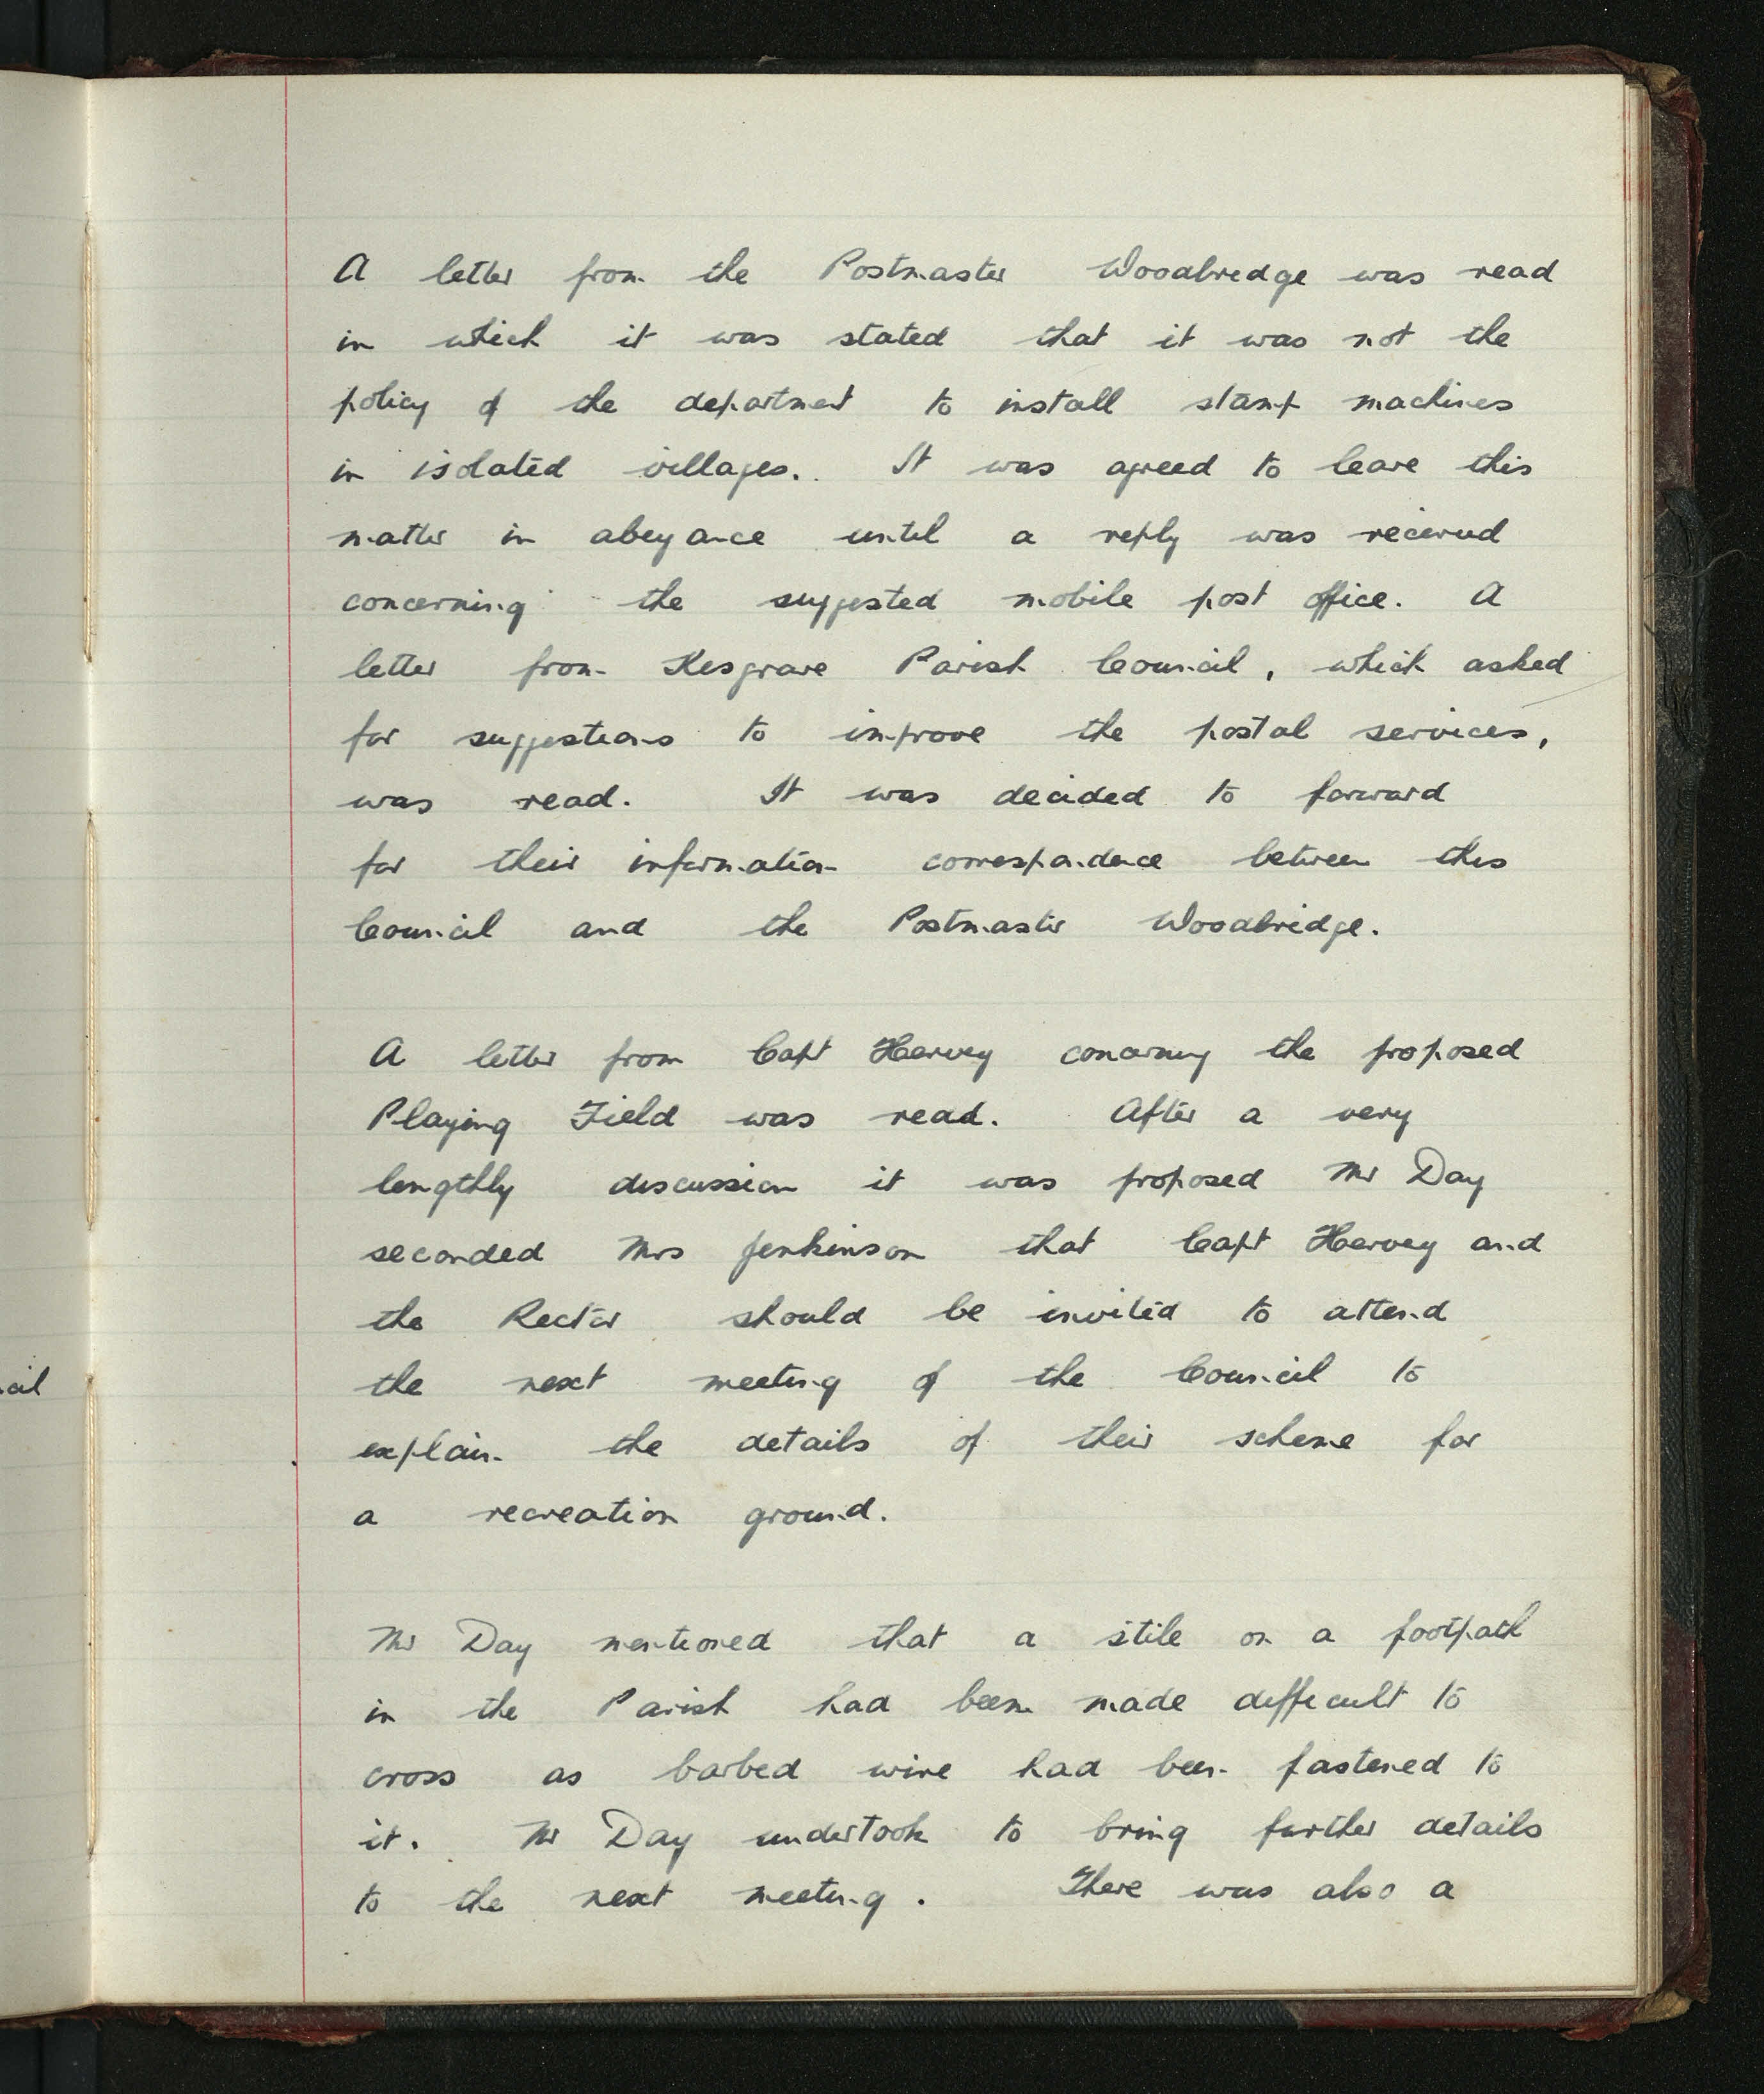 A letter from the Postmaster Woodbridge was read
in which it was stated that it was not the
policy of the department to install stamp machines
in isolated villages. It was agreed to leave this
matter in abeyance until a reply was received
concerning the suggested mobile post office. A
letter from Kesgrave Parish Council, which asked
for suggestions to improve the postal services,
was read. It was decided to forward
for their information correspondence between this
Council and the Postmaster Woodbridge.
A letter from Capt Hervey concerning the proposed
Playing Field was read. After a very
lengthly discussion it was proposed Mr Day
seconded Mrs Jenkinson that Capt Hervey and
the Rector should be invited to attend
the next meeting of the Council to
explain the details of their scheme for
a recreation ground.
Mr Day mentioned that a stile on a footpath
in the Parish had been made difficult to
cross as barbed wire had been fastened to
it. Mr Day undertook to bring further details
to the next meeting. There was also a